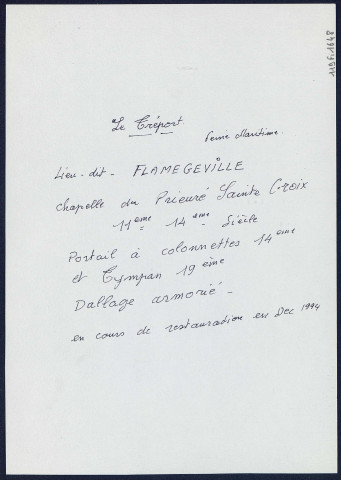 119Fi1648
Le Tréport.
Seine Maritime.
Lieu-dit - FLAMEGEVILLE
Chapelle du Prieuré Sainte Croix
11ème 14ème Siècle
Portail à colonnettes 14ème
et Tympan 19ème
Dallage armorié -
en cours de restauration en Dec 1994